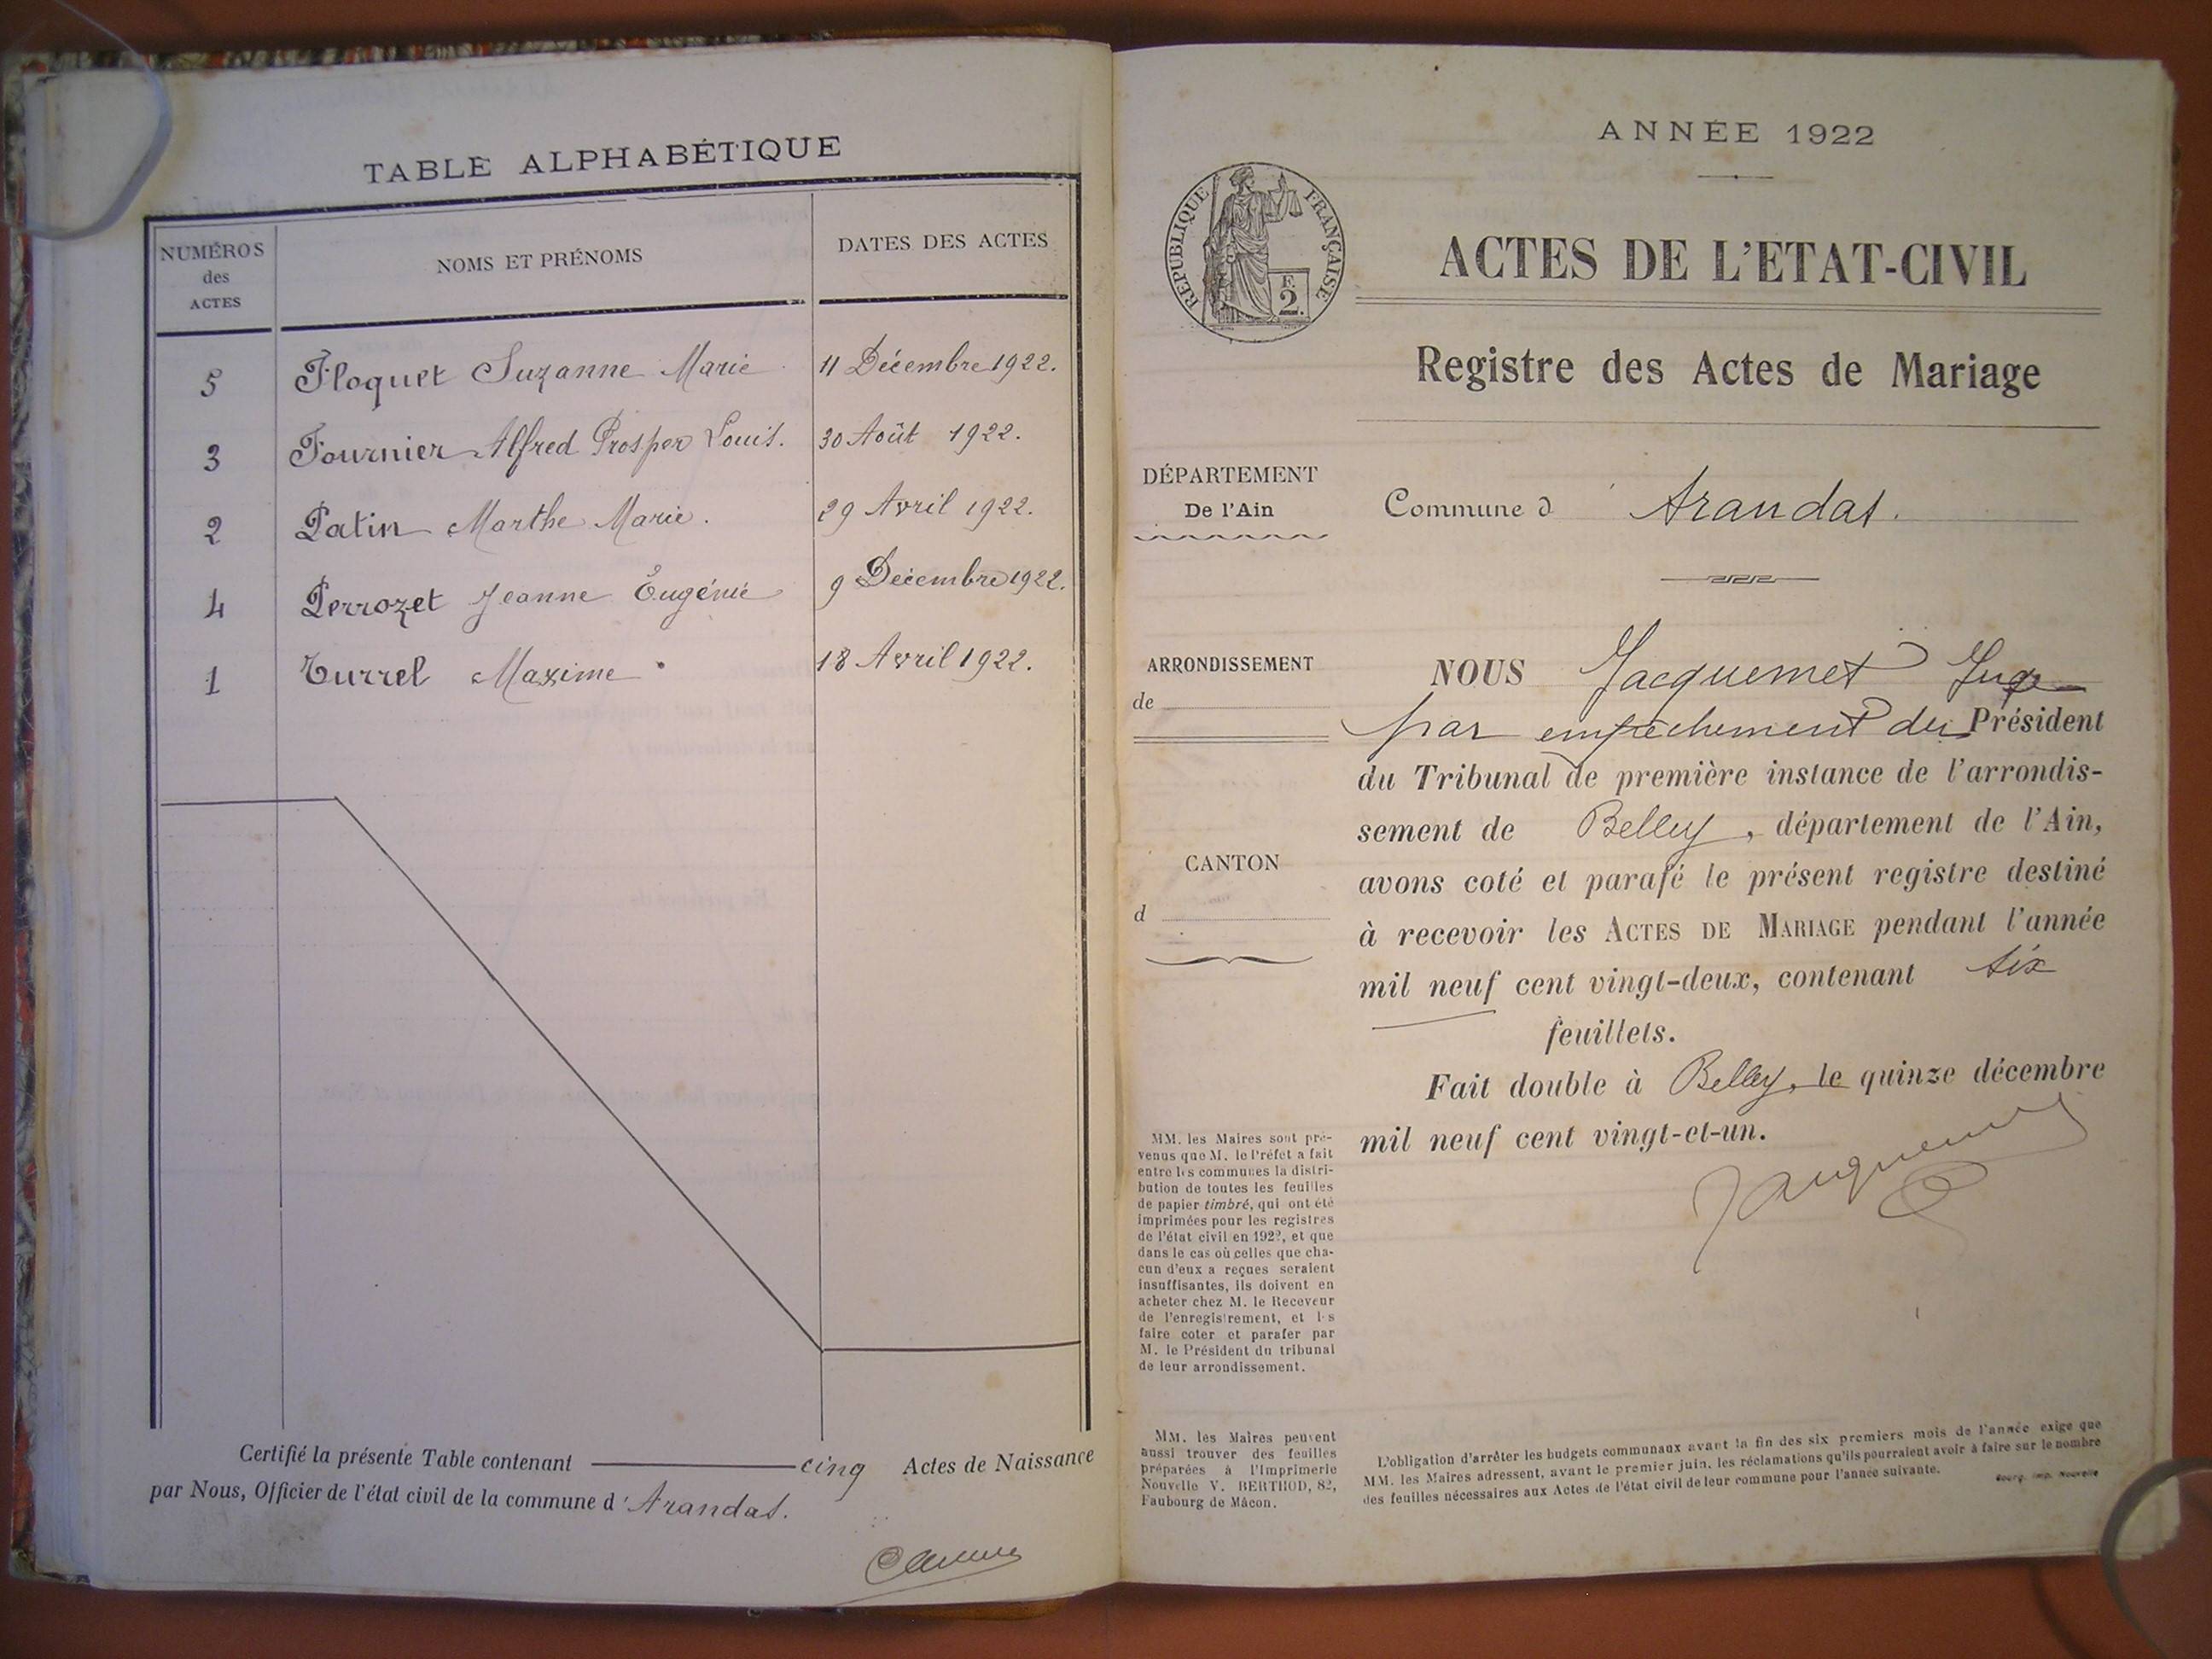 TABLE ALPHABÉTIQUE
NUMÉROS
des
ACTES
NOMS ET PRÉNOMS
DATES DES ACTES
5 Floquet Suzanne Marie 11 Décembre 1922.
3 Fournier Alfred Prosper Louis. 30 Août 1922.
2 Patin Marthe Marie. 29 Avril 1922.
4 Perrozet Jeanne Eugénie 9 Décembre 1922.
1 Turrel Maxime 18 Avril 1922.
Certifié la présente Table contenant cinq Actes de Naissance
par Nous, Officier de l'état civil de la commune d'Arandas.
ANNÉE 1922
RÉPUBLIQUE FRANÇAISE
F.
2.
ACTES DE L'ETAT-CIVIL
Registre des Actes de Mariage
DÉPARTEMENT
De l'Ain
Commune d' Arandas.
ARRONDISSEMENT
de
CANTON
d
NOUS Jacquemet Juge
par empêchement du Président
du Tribunal de première instance de l'arrondis-
sement de Belley, département de l'Ain,
avons coté et parafé le présent registre destiné
à recevoir les ACTES DE MARIAGE pendant l'année
mil neuf cent vingt-deux, contenant six
feuillets.
Fait double à Belley, le quinze décembre
mil neuf cent vingt-et-un.
Jacquemet
MM. les Maires sont pré-
venus que M. le Préfet a fait
entre les communes la distri-
bution de toutes les feuilles
de papier timbré, qui ont été
imprimées pour les registres
de l'état civil en 1922, et que
dans le cas où celles que cha-
cun d'eux a reçues seraient
insuffisantes, ils doivent en
acheter chez M. le Receveur
de l'enregistrement, et les
faire coter et parafer par
M. le Président du tribunal
de leur arrondissement.
MM. les Maires peuvent
aussi trouver des feuilles
préparées à l'Imprimerie
Nouvelle V. BERTHOD, 82,
Faubourg de Mâcon.
L'obligation d'arrêter les budgets communaux avant la fin des six premiers mois de l'année exige que
MM. les Maires adressent, avant le premier juin, les réclamations qu'ils pourraient avoir à faire sur le nombre
des feuilles nécessaires aux Actes de l'état civil de leur commune pour l'année suivante.
Bourg, Imp. Nouvelle